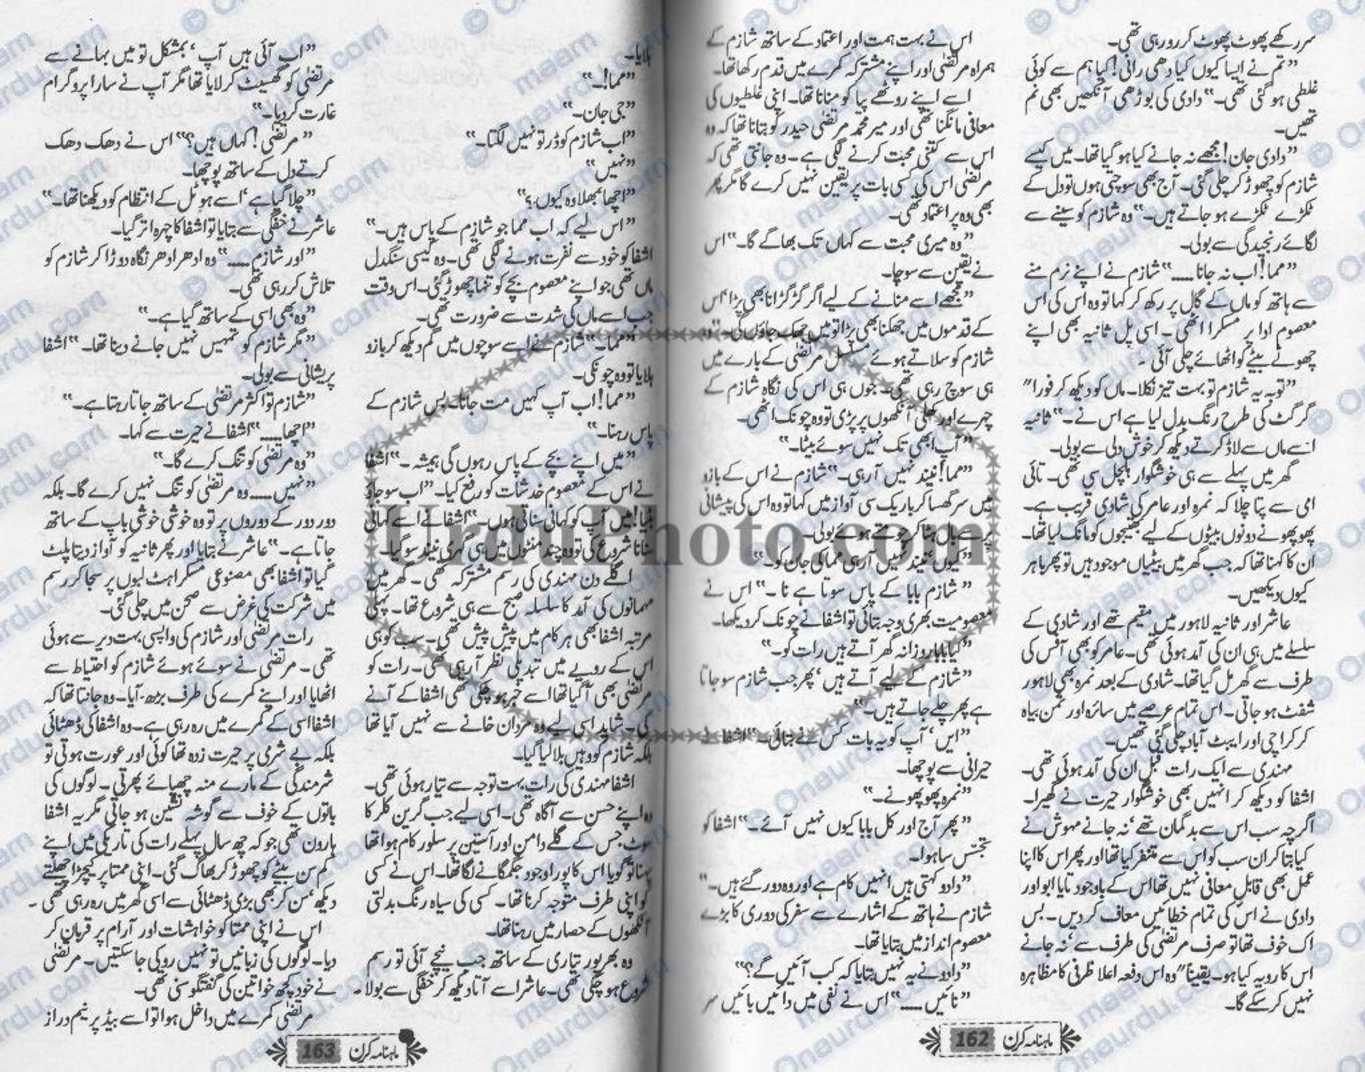 سر رکھے پھوٹ پھوٹ کر رو رہی تھی۔
”تم نے ایسا کیوں کیا دھی رانی! کیا ہم سے کوئی
غلطی ہو گئی تھی۔“ دادی کی بوڑھی آنکھیں بھی نم
تھیں۔
”دادی جان! مجھے نہ جانے کیا ہو گیا تھا۔ میں کیسے
شازم کو چھوڑ کر چلی گئی۔ آج بھی سوچتی ہوں تو دل کے
ٹکڑے ٹکڑے ہو جاتے ہیں۔“ وہ شازم کو سینے سے
لگائے رنجیدگی سے بولی۔
”مما! اب نہ جانا.....“ شازم نے اپنے نرم منے
سے ہاتھ کو ماں کے گال پر رکھ کر کہا تو وہ اس کی اس
معصوم ادا پر مسکرا اٹھی۔ اسی پل ثانیہ بھی اپنے
چھوٹے بیٹے کو اٹھائے چلی آئی۔
”توبہ یہ شازم تو بہت تیز نکلا۔ ماں کو دیکھ کر فورا"
گرگٹ کی طرح رنگ بدل لیا ہے اس نے۔“ ثانیہ
اسے ماں سے لاڈ کرتے دیکھ کر خوش دلی سے بولی۔
گھر میں پہلے سے ہی خوشگوار ہلچل سی تھی۔ تائی
امی سے پتا چلا کہ نمرہ اور عامر کی شادی قریب ہے۔
پھوپھو نے دونوں بیٹوں کے لیے بھتیجیوں کو مانگ لیا تھا۔
ان کا کہنا تھا کہ جب گھر میں بیٹیاں موجود ہیں تو پھر باہر
کیوں دیکھیں۔
عاشر اور ثانیہ لاہور میں مقیم تھے اور شادی کے
سلسلے میں ہی ان کی آمد ہوئی تھی۔ عامر کو بھی آفس کی
طرف سے گھر مل گیا تھا۔ شادی کے بعد نمرہ بھی لاہور
شفٹ ہو جاتی۔ اس تمام عرصے میں سائرہ اور ثمن بیاہ
کر کراچی اور ایبٹ آباد چلی گئی تھیں۔
مہندی سے ایک رات قبل ان کی آمد ہوئی تھی۔
اشفا کو دیکھ کر انہیں بھی خوشگوار حیرت نے گھیرا۔
اگرچہ سب اس سے بدگمان تھے‘ نہ جانے مہوش نے
کیا بتا کر ان سب کو اس سے متنفر کیا تھا اور پھر اس کا اپنا
عمل بھی قابل معافی نہیں تھا اس کے باوجود تایا ابو اور
دادی نے اس کی تمام خطائیں معاف کر دیں۔ بس
اک خوف تھا تو صرف مرتضیٰ کی طرف سے‘ نہ جانے
اس کا رویہ کیا ہو۔ یقینا" وہ اس دفعہ اعلا ظرفی کا مظاہرہ
نہیں کر سکے گا۔
اس نے بہت ہمت اور اعتماد کے ساتھ شازم کے
ہمراہ مرتضیٰ اور اپنے مشترکہ کمرے میں قدم رکھا تھا۔
اسے اپنے روٹھے پیا کو منانا تھا۔ اپنی غلطیوں کی
معافی مانگنا تھی اور میر محمد مرتضیٰ حیدر کو بتانا تھا کہ وہ
اس سے کتنی محبت کرنے لگی ہے۔ وہ جانتی تھی کہ
مرتضیٰ اس کی کسی بات پر یقین نہیں کرے گا مگر پھر
بھی وہ پر اعتماد تھی۔
”وہ میری محبت سے کہاں تک بھاگے گا۔“ اس
نے یقین سے سوچا۔
”مجھے اسے منانے کے لیے اگر گڑگڑانا بھی پڑا‘ اس
کے قدموں میں جھکنا بھی پڑا تو میں جھک جاؤں گی۔“ وہ
شازم کو سلاتے ہوئے مسلسل مرتضیٰ کے بارے میں
ہی سوچ رہی تھی۔ جوں ہی اس کی نگاہ شازم کے
چہرے اور کھلی آنکھوں پر پڑی تو وہ چونک اٹھی۔
”آپ ابھی تک نہیں سوئے بیٹا۔“
”مما! نیند نہیں آ رہی۔“ شازم نے اس کے بازو
میں سر گھسا کر باریک سی آواز میں کہا تو وہ اس کی پیشانی
پر سے بال ہٹا کر چومتے ہوئے بولی۔
”کیوں نیند نہیں آ رہی مما کی جان کو۔“
”شازم بابا کے پاس سوتا ہے نا۔“ اس نے
معصومیت بھری وجہ بتائی تو اشفا نے چونک کر دیکھا۔
”کیا بابا روزانہ گھر آتے ہیں رات کو۔“
”شازم کے لیے آتے ہیں‘ پھر جب شازم سو جاتا
ہے پھر چلے جاتے ہیں۔“
”اس‘ آپ کو یہ بات کس نے بتائی۔“ اشفا نے
حیرانی سے پوچھا۔
”نمرہ پھوپھو نے۔“
”پھر آج اور کل بابا کیوں نہیں آئے۔“ اشفا کو
تجسس سا ہوا۔
”دادو کہتی ہیں انہیں کام ہے اور وہ دور گئے ہیں۔“
شازم نے ہاتھ کے اشارے سے سفر کی دوری کا بڑے
معصوم انداز میں بتایا تھا۔
”دادو نے یہ نہیں بتایا کہ کب آئیں گے؟“
”نائیں.....“ اس نے نفی میں دائیں بائیں سر
ماہنامہ کرن 162
ہلایا۔
”مما!۔“
”جی جان۔“
”اب شازم کو ڈر تو نہیں لگتا۔“
”نہیں“
”اچھا‘ بھلا وہ کیوں؟“
”اس لیے کہ اب مما جو شازم کے پاس ہیں۔“
اشفا کو خود سے نفرت ہونے لگی تھی۔ وہ کیسی سنگدل
ماں تھی جو اپنے معصوم بچے کو تنہا چھوڑ گئی۔ اس وقت
جب اسے ماں کی شدت سے ضرورت تھی۔
”مما۔“ شازم نے اسے سوچوں میں گم دیکھ کر بازو
ہلایا تو وہ چونکی۔
”مما! اب آپ کہیں مت جانا۔ بس شازم کے
پاس رہنا۔“
”میں اپنے بچے کے پاس رہوں گی ہمیشہ۔“ اشفا
نے اس کے معصوم خدشات کو رفع کیا۔ ”اب سو جاؤ
بیٹا! میں آپ کو کہانی سناتی ہوں۔“ اشفا نے اسے کہانی
سنانا شروع کی تو وہ چند منٹوں میں ہی گہری نیند سو گیا۔
اگلے دن مہندی کی رسم مشترکہ تھی۔ گھر میں
مہمانوں کی آمد کا سلسلہ صبح سے ہی شروع تھا۔ پہلی
مرتبہ اشفا بھی ہر کام میں پیش پیش تھی۔ سب کو ہی
اس کے رویے میں تبدیلی نظر آ رہی تھی۔ رات کو
مرتضیٰ بھی آ گیا تھا اسے خبر ہو چکی تھی اشفا کے آنے
کی۔ شاید اسی لیے وہ مردان خانے سے نہیں آیا تھا
بلکہ شازم کو وہیں بلا لیا گیا۔
اشفا مہندی کی رات بہت توجہ سے تیار ہوئی تھی۔
وہ اپنے حسن سے آگاہ تھی۔ اسی لیے جب گرین کلر کا
سوٹ جس کے گلے دامن اور آستین پر سلور کام ہوا تھا
پہنا تو گویا اس کا پورا وجود جگمگانے لگا تھا۔ اس نے کسی
کو اپنی طرف متوجہ کرنا تھا۔ کسی کی سیاہ رنگ بدلتی
آنکھوں کے حصار میں رہنا تھا۔
وہ بھرپور تیاری کے ساتھ جب نیچے آئی تو رسم
شروع ہو چکی تھی۔ عاشر اسے آتا دیکھ کر خفگی سے بولا۔
”اب آئی ہیں آپ‘ بمشکل تو میں بہانے سے
مرتضیٰ کو گھسیٹ کر لایا تھا مگر آپ نے سارا پروگرام
غارت کر دیا۔“
”مرتضیٰ! کہاں ہیں؟“ اس نے دھک دھک
کرتے دل کے ساتھ پوچھا۔
”چلا گیا ہے‘ اسے ہوٹل کے انتظام کو دیکھنا تھا۔“
عاشر نے خفگی سے بتایا تو اشفا کا چہرہ اتر گیا۔
”اور شازم.....“ وہ ادھر ادھر نگاہ دوڑا کر شازم کو
تلاش کر رہی تھی۔
”وہ بھی اسی کے ساتھ گیا ہے۔“
”مگر شازم کو تمہیں نہیں جانے دینا تھا۔“ اشفا
پریشانی سے بولی۔
”شازم تو اکثر مرتضیٰ کے ساتھ جاتا رہتا ہے۔“
”اچھا.....“ اشفا نے حیرت سے کہا۔
”وہ مرتضیٰ کو تنگ کرے گا۔“
”نہیں..... وہ مرتضیٰ کو تنگ نہیں کرے گا۔ بلکہ
دور دور کے دوروں پر تو وہ خوشی خوشی باپ کے ساتھ
جاتا ہے۔“ عاشر نے بتایا اور پھر ثانیہ کو آواز دیتا پلٹ
گیا تو اشفا بھی مصنوعی مسکراہٹ لبوں پر سجا کر رسم
میں شرکت کی غرض سے صحن میں چلی گئی۔
رات مرتضیٰ اور شازم کی واپسی بہت دیر سے ہوئی
تھی۔ مرتضیٰ نے سوئے ہوئے شازم کو احتیاط سے
اٹھایا اور اپنے کمرے کی طرف بڑھ آیا۔ وہ جانتا تھا کہ
اشفا اسی کے کمرے میں رہ رہی ہے۔ وہ اشفا کی ڈھٹائی
بلکہ بے شرمی پر حیرت زدہ تھا کوئی اور عورت ہوتی تو
شرمندگی کے مارے منہ چھپائے پھرتی۔ لوگوں کی
باتوں کے خوف سے گوشہ نشین ہو جاتی مگر یہ اشفا
ہارون تھی جو کہ چھ سال پہلے رات کی تاریکی میں اپنے
کم سن بیٹے کو چھوڑ کر بھاگ گئی۔ اپنی ممتا پر کیچڑ اچھلتے
دیکھ‘ سن کر بھی بڑی ڈھٹائی سے اسی گھر میں رہ رہی تھی۔
اس نے اپنی ممتا کو خواہشات اور آرام پر قربان کر
دیا۔ لوگوں کی زبانیں تو نہیں روکی جا سکتیں۔ مرتضیٰ
نے خود کچھ خواتین کی گفتگو سنی تھی۔
مرتضیٰ کمرے میں داخل ہوا تو اسے بیڈ پر نیم دراز
ماہنامہ کرن 163
UrduPhoto.com